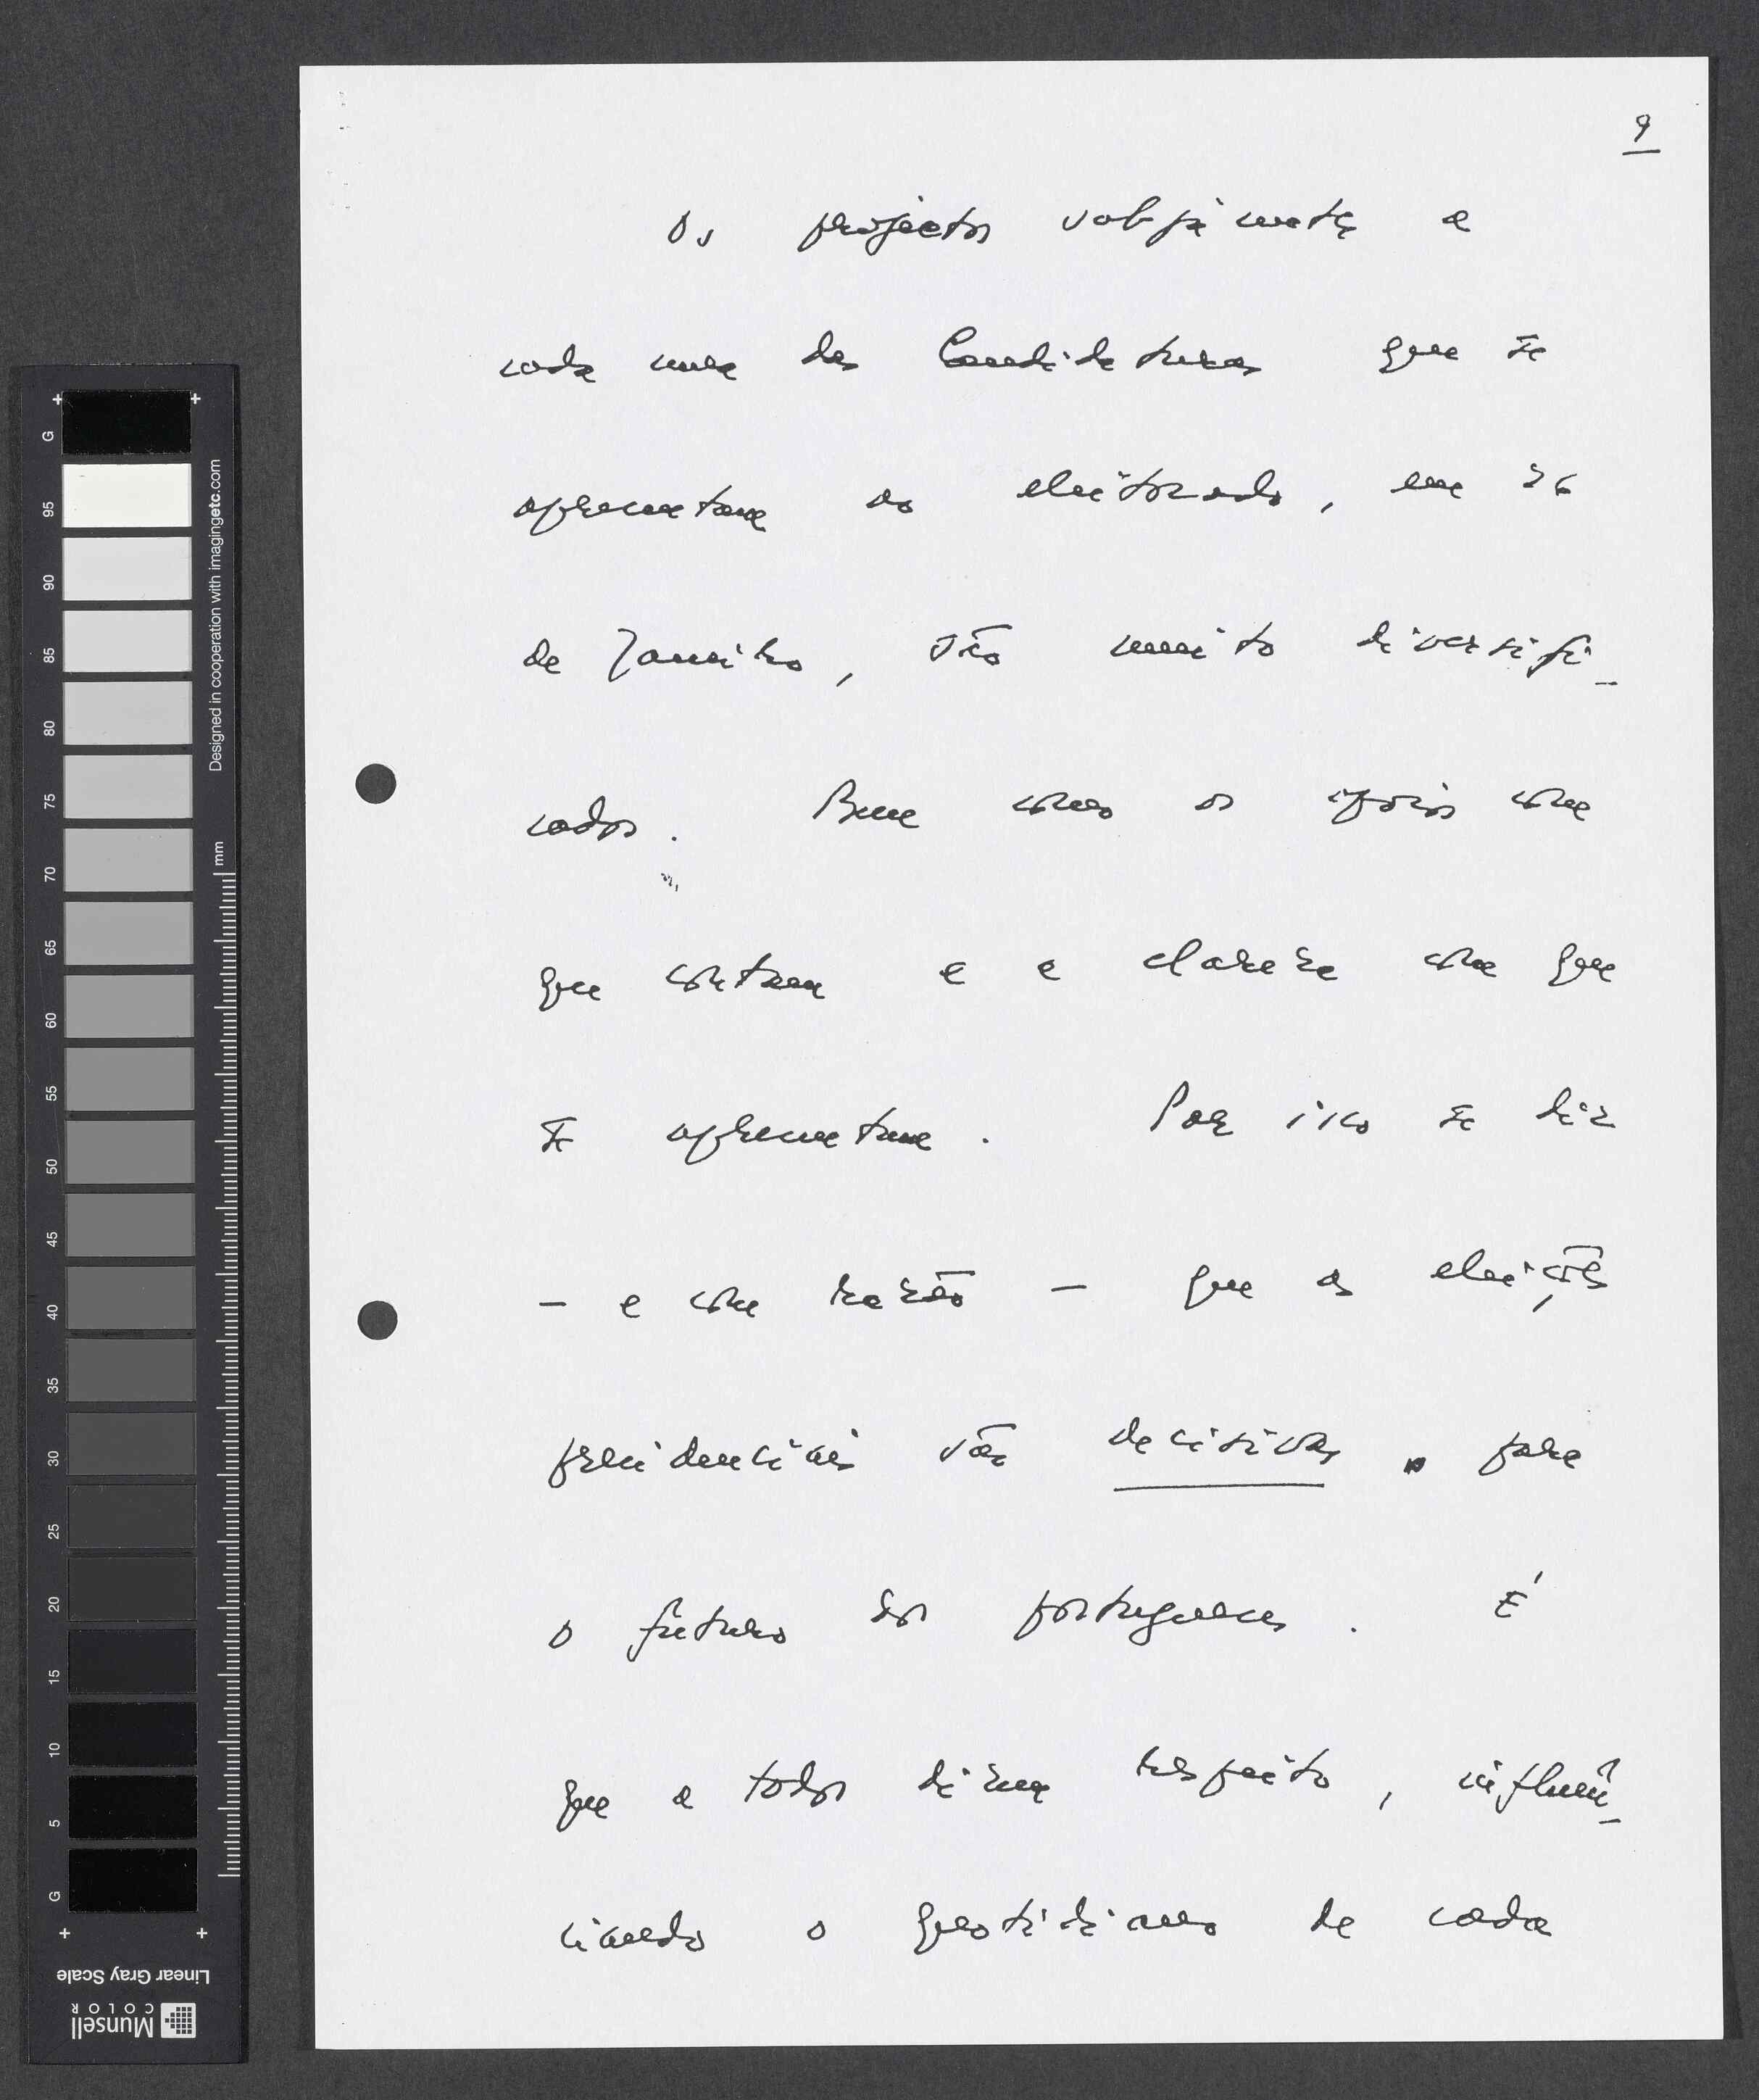 9
Os projectos subjacentes a
cada uma das Candidaturas que se
apresentam ao eleitorado, em 26
de Janeiro, são muito diversifi-
cados. Bem como os apoios com
que contam e a clareza com que
se apresentam. Por isso se diz
- e com razão - que as eleições
presidenciais são decisivas para
o futuro dos portugueses. É
que a todos dizem respeito, influên-
ciando o quotidiano de cada
G
95
90
85
80
75
70
65
60
55
50
45
40
35
30
25
20
15
10
5
G
mm
Designed in cooperation with imagingetc.com
Linear Gray Scale
Munsell
COLOR